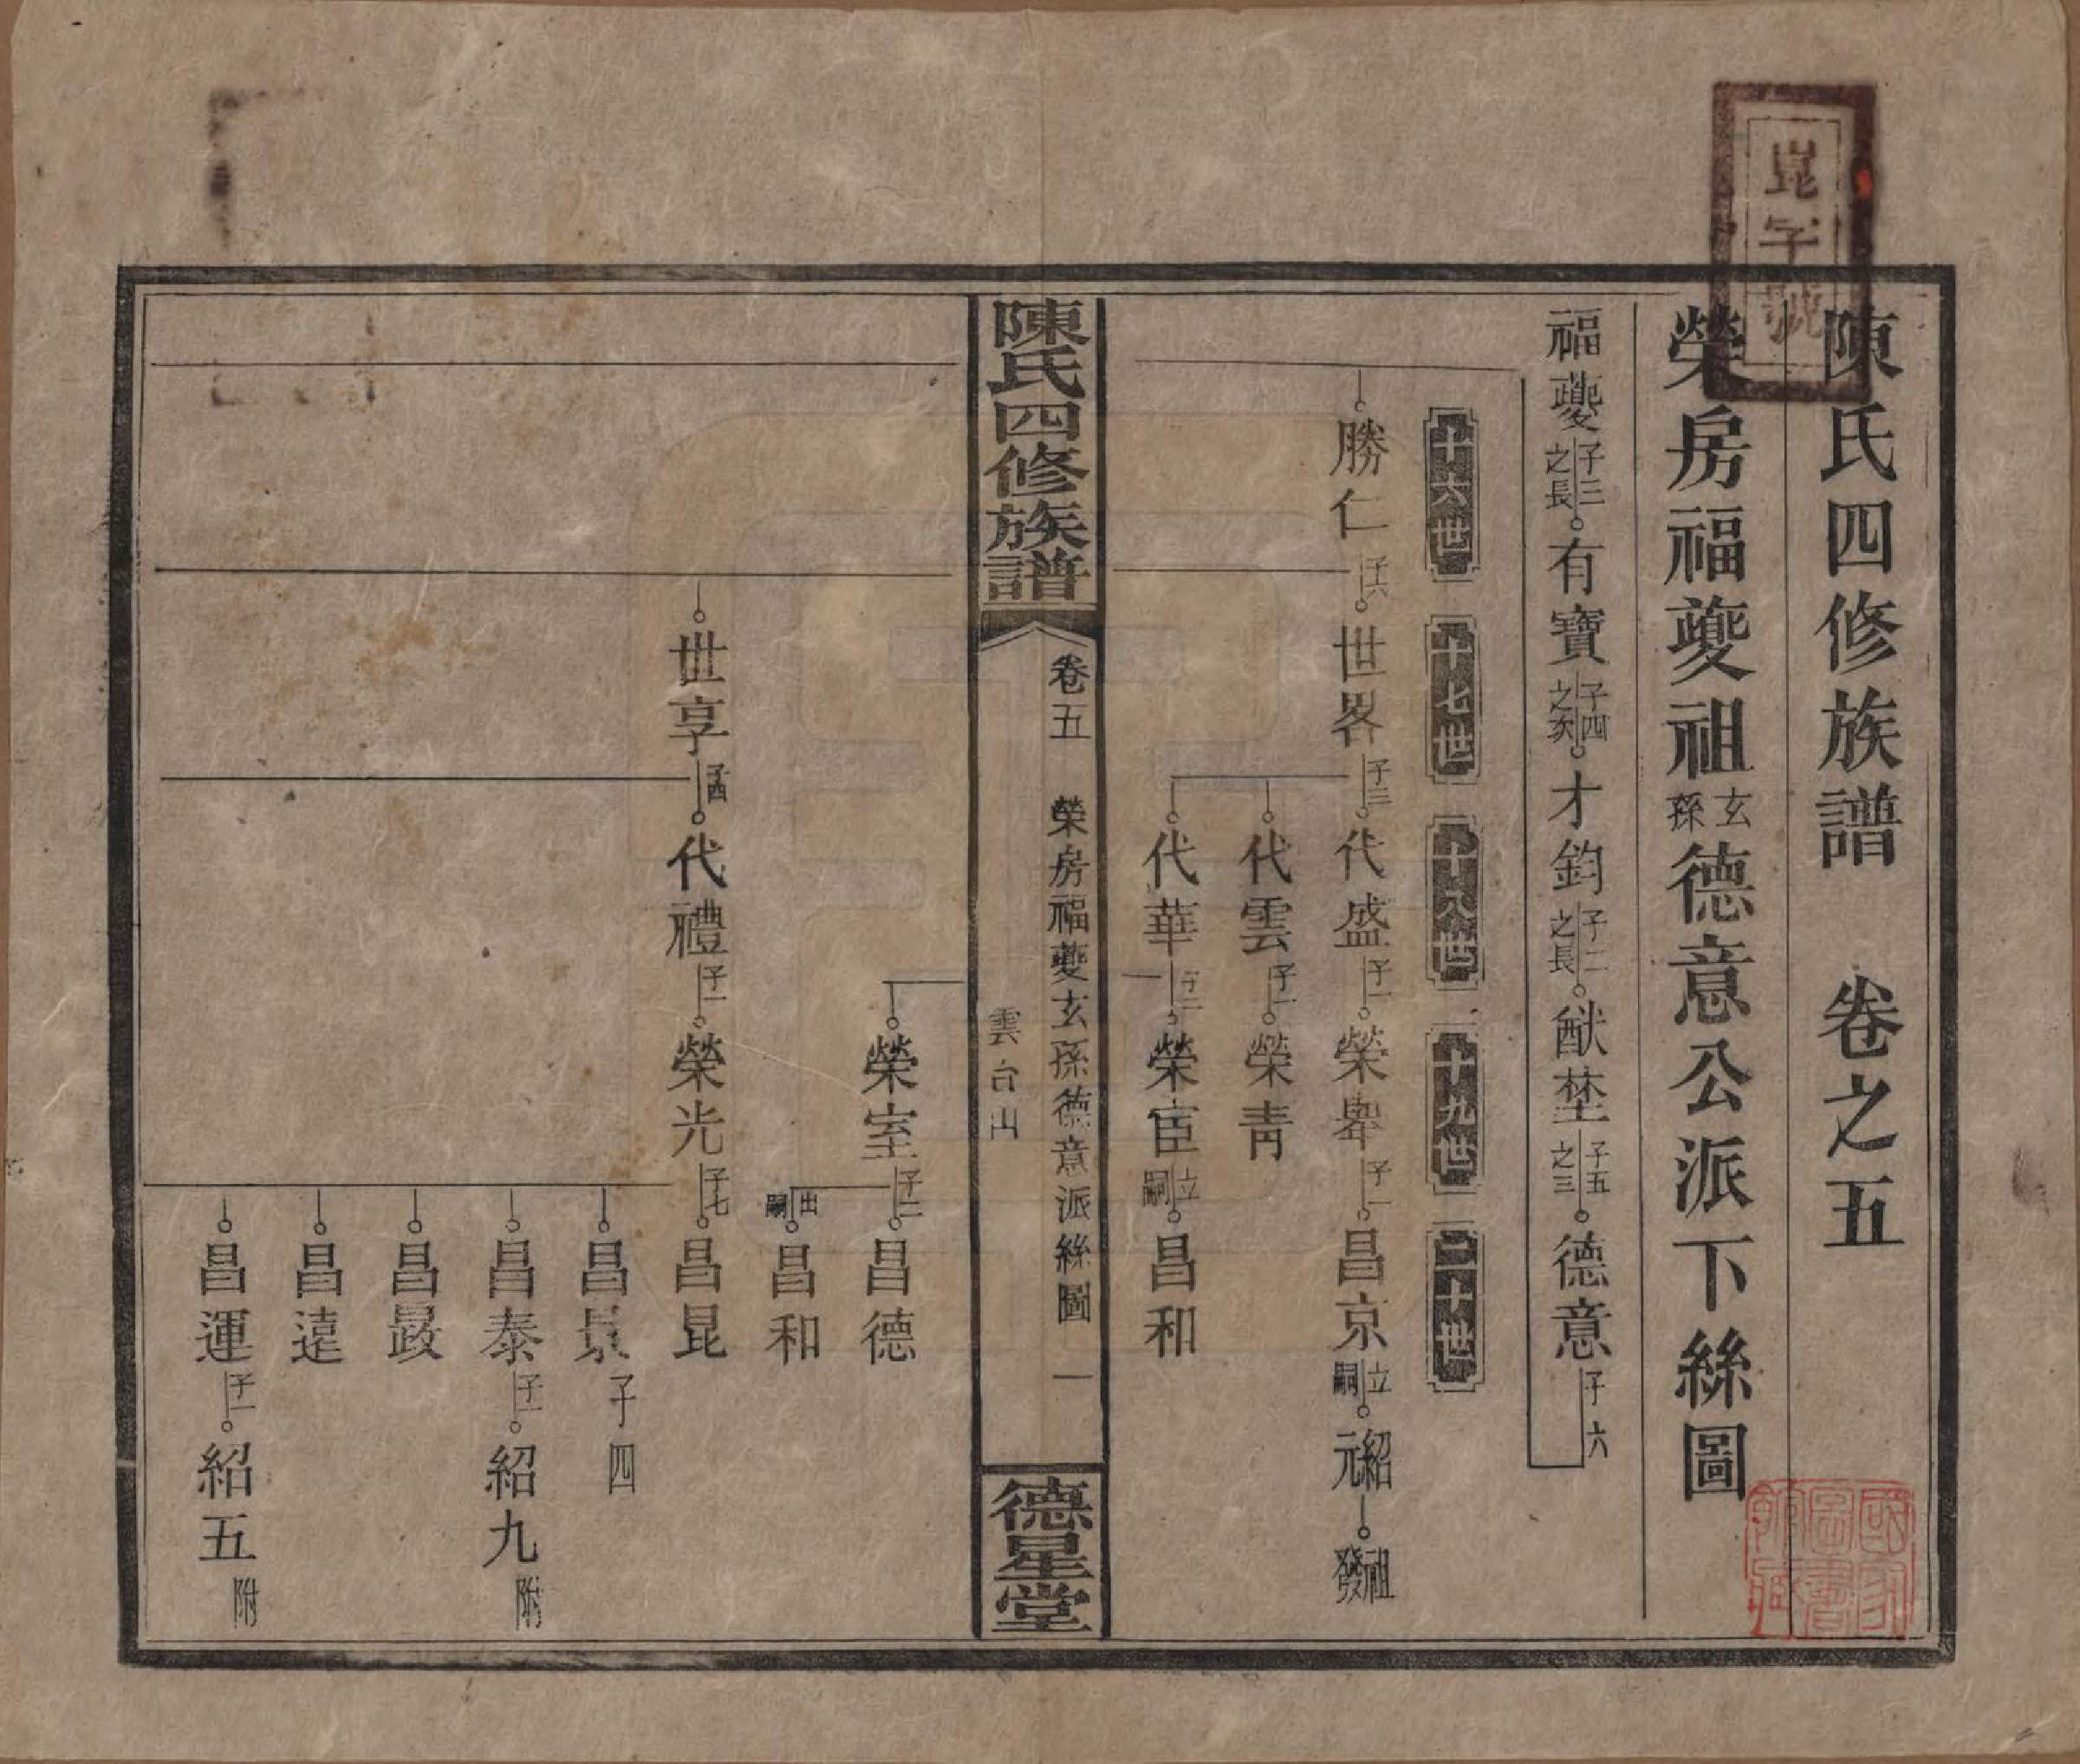 陳氏四修族譜 卷之五
榮房福夔祖玄孫德意公派下絲圖
福夔子三之長有寶子四之次才鈞子二之長猷埜子五之三德意子六
十六世 十七世 十八世 十九世 二十世
勝仁子六世畧子三代盛子一榮舉子一昌京立嗣紹元祖發
代雲子一榮青
代華子二榮宦立嗣昌和
陳氏四修族譜 卷五 榮房福夔玄孫德意派絲圖 一 德星堂
雲台山
榮室子二昌德
出嗣昌和
世享子四代禮子一榮光子七昌昆
昌景子四
昌泰子一紹九附
昌
昌遠
昌運子一紹五附
崑字號
國家圖書館藏